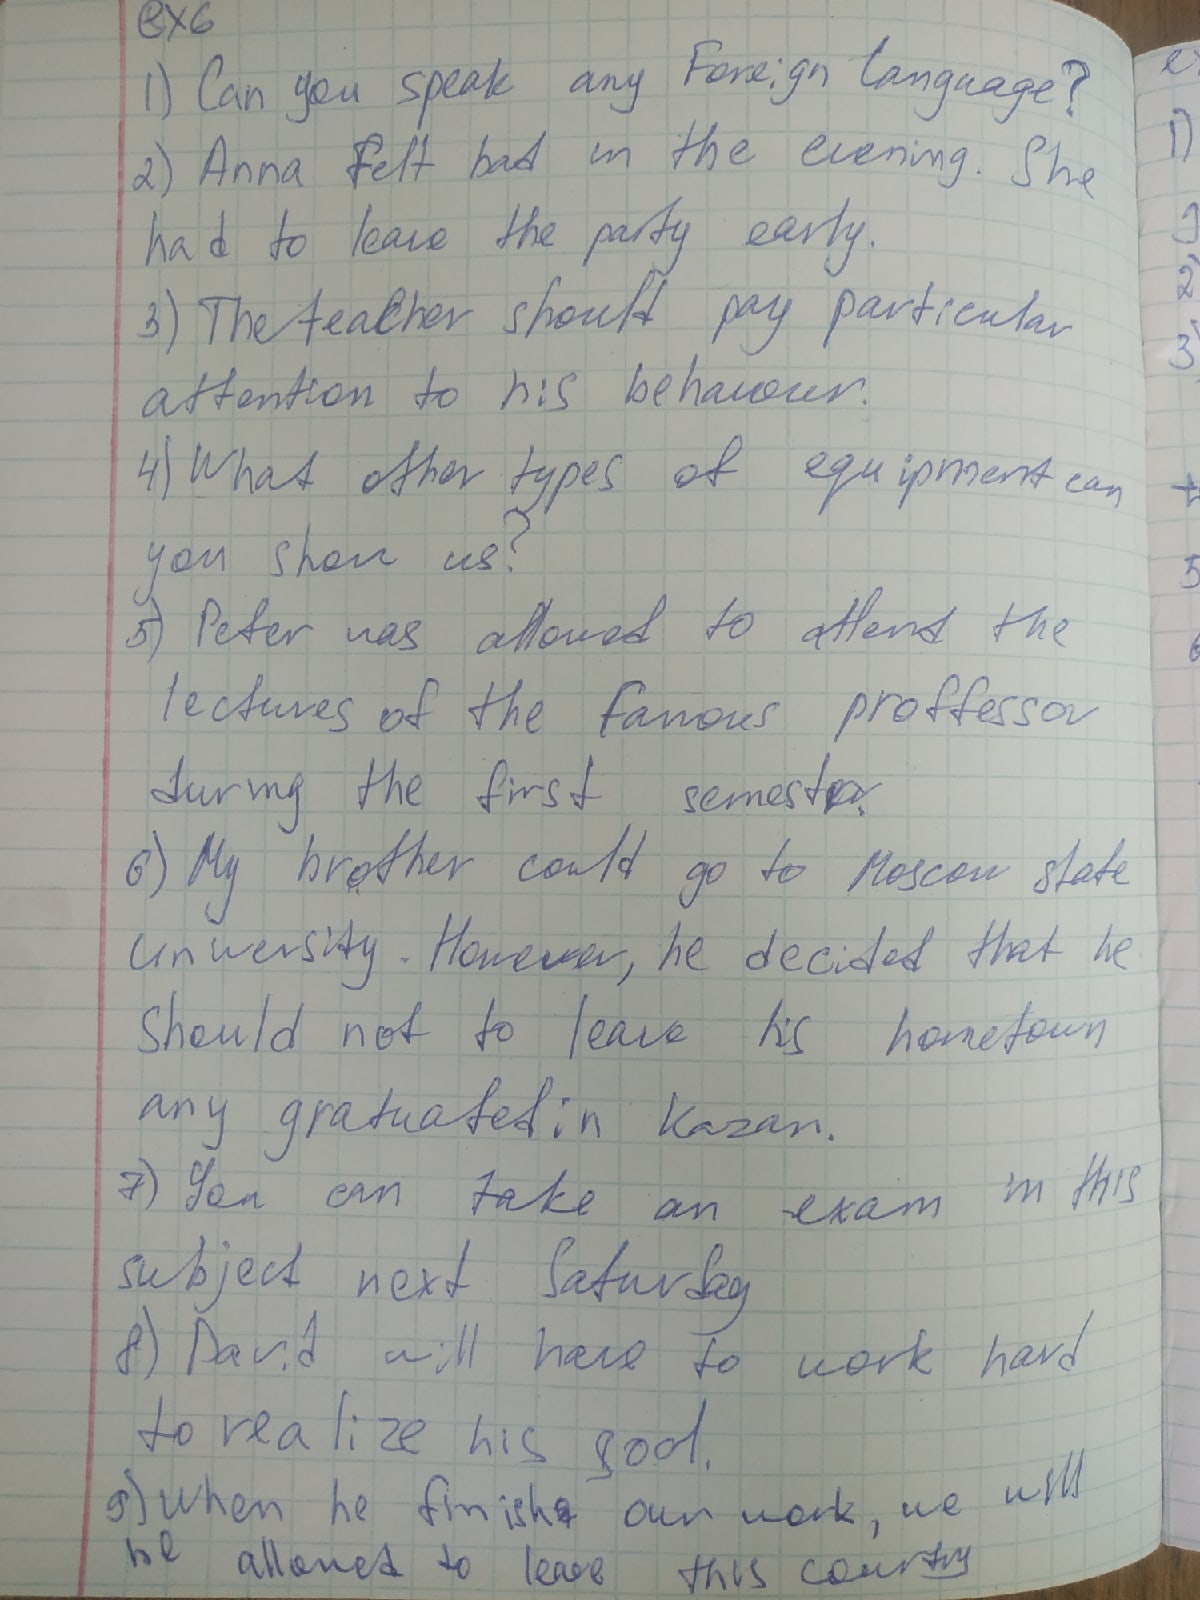 ex6
1) Can you speak any Foreign language?
2) Anna Felt bad in the evening. She
had to leave the party early.
3) The teacher should pay particular
attention to his behaviour.
4) What other types of equipment can
you show us?
5) Peter was allowed to attend the
lectures of the famous proffessor
during the first semester.
6) My brother could go to Moscow state
university. However, he decided that he
should not to leave his hometown
any graduated in Kazan.
7) You can take an exam in this
subject next Saturday
8) David will have to work hard
to realize his goal.
9) When he finishe our work, we will
be allowed to leave this country
1)
2)
3)
5
6